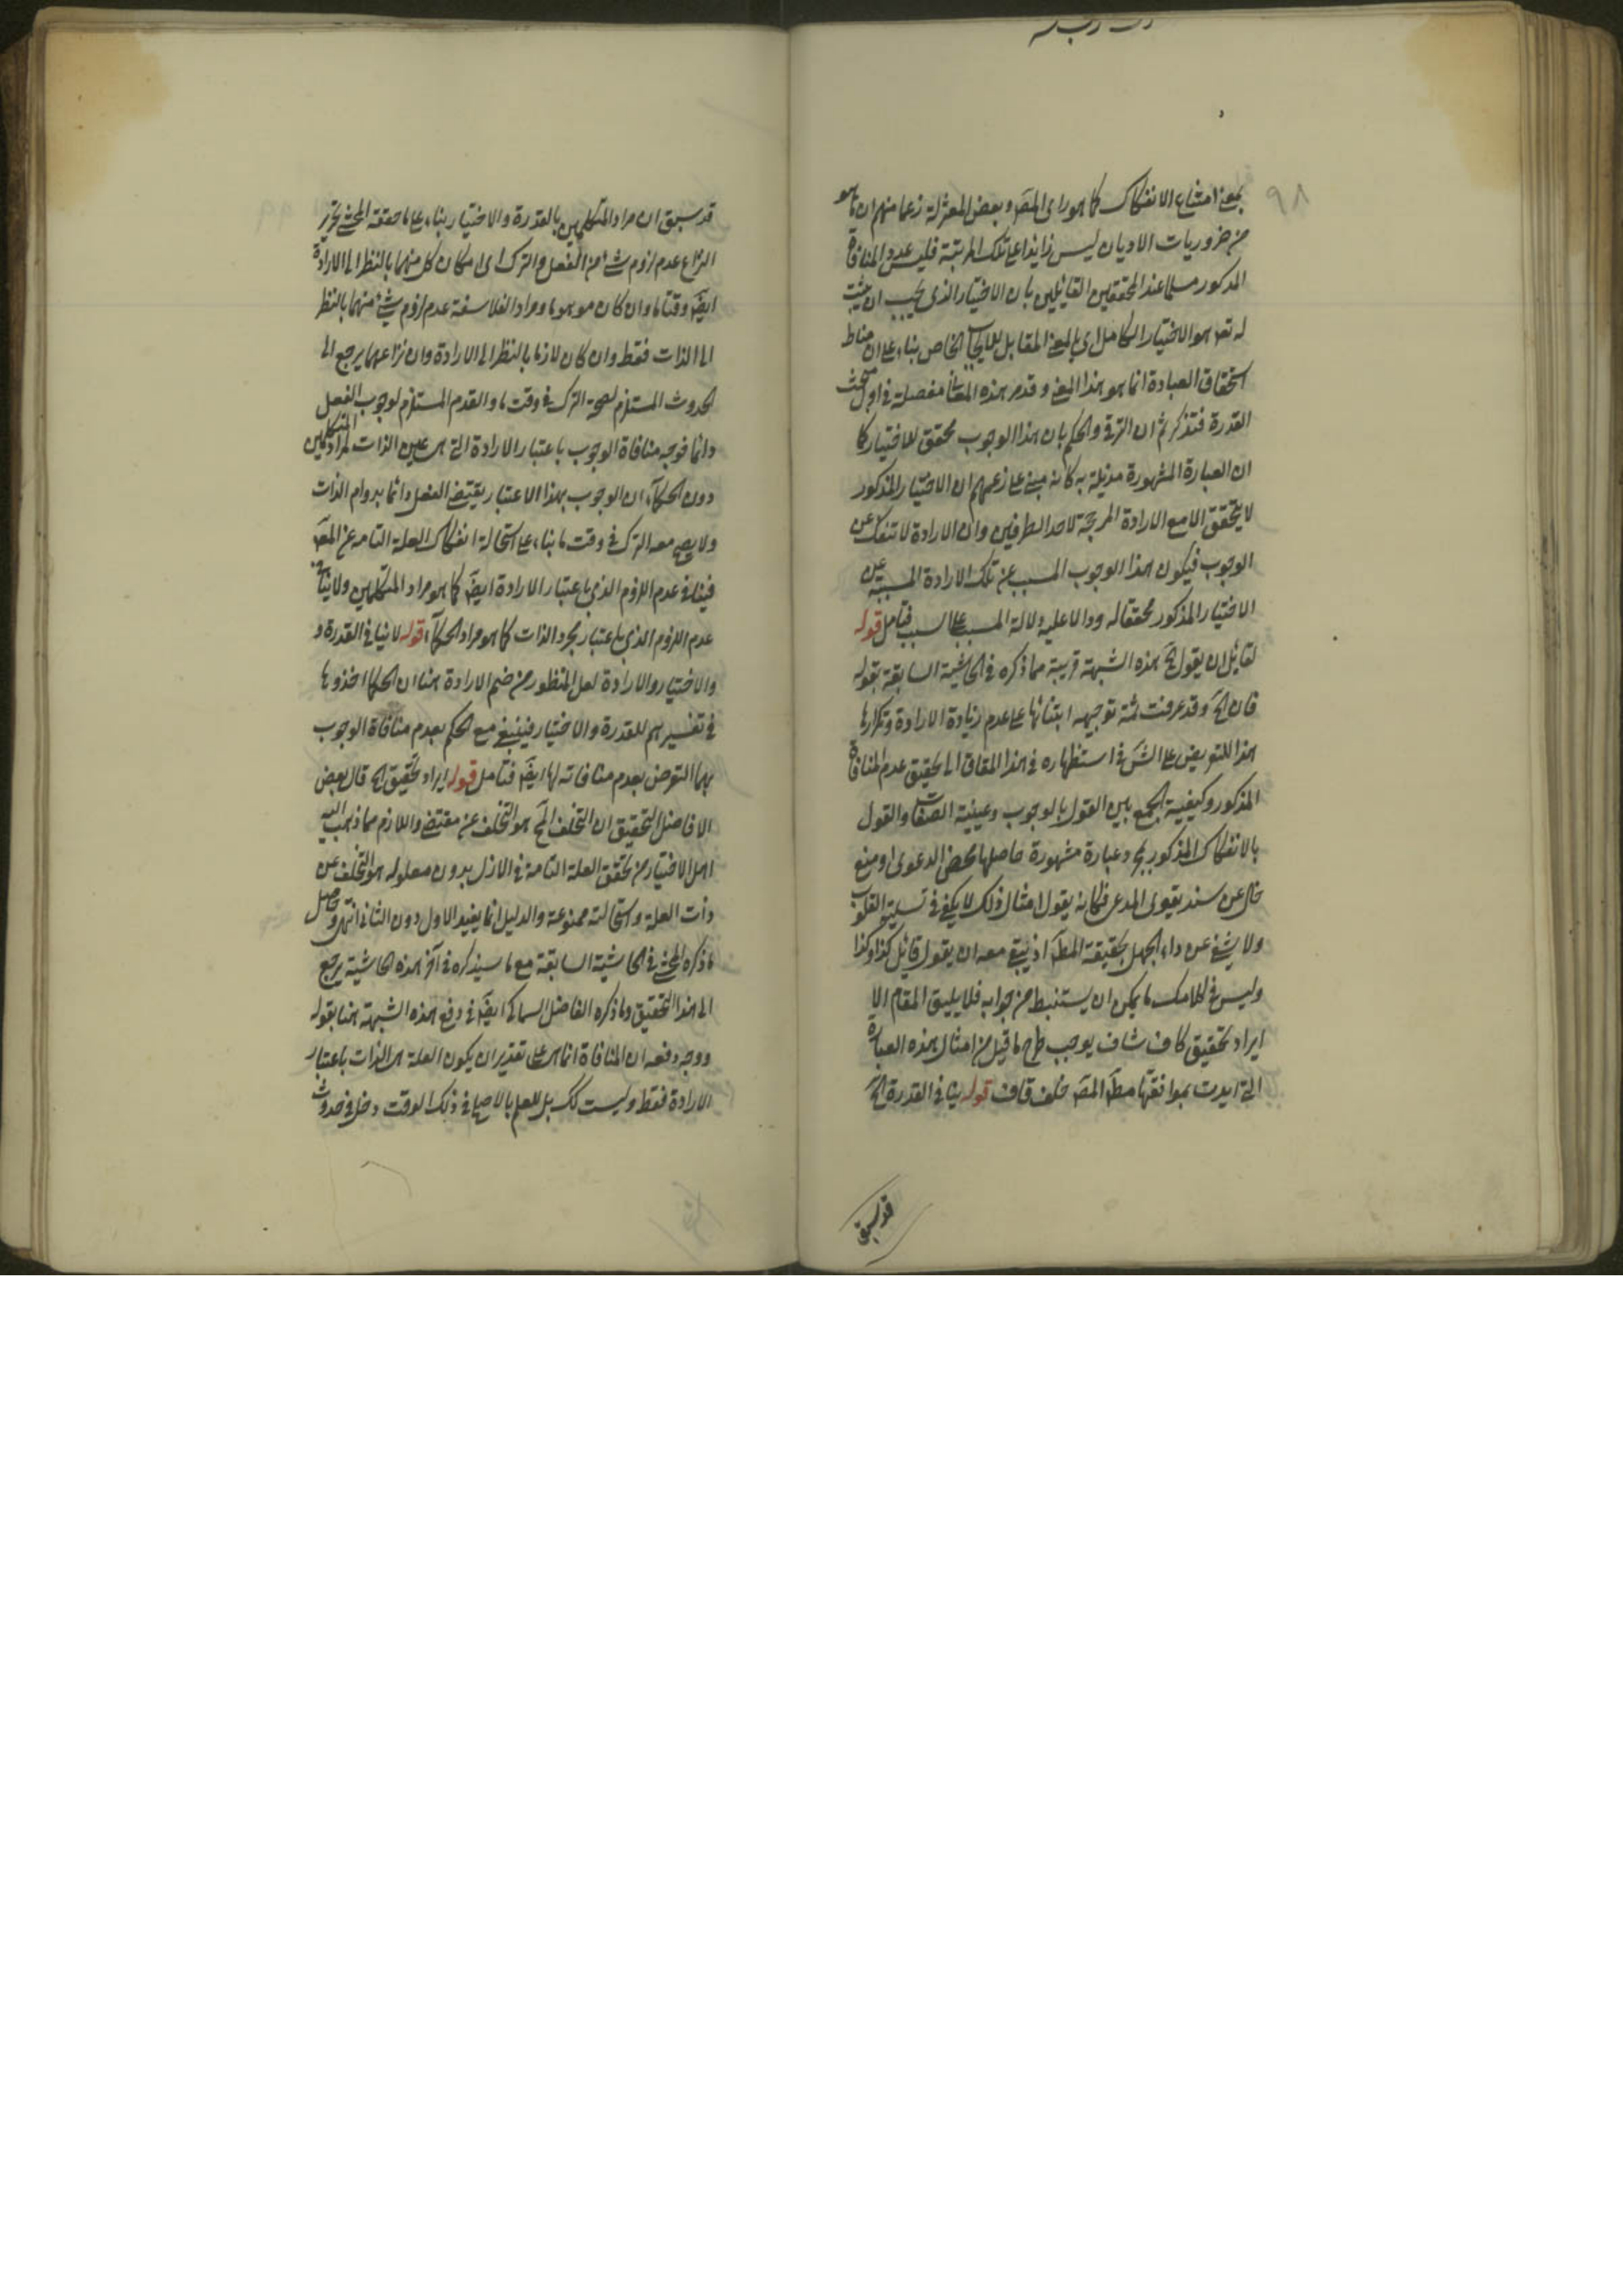 ٩٨
بمعنى امتناع الانفكاك كما هو رأى المصَ وبعض المعتزلة زعما منهم ان ما هو
من ضروريات الاديان ليس زايدا على تلك المرتبة فليس عدم المنافاة
المذكور مسلما عند المحققين القائلين بان الاختيار الذى يجب ان يثبت
له تعـ هو الاختيار الكامل اى بالمعنى المقابل للايجاب الخاص بناء على ان مناط
استحقاق العبادة انما هو بهذا المعنى وقد مر هذه المعانى مفصلة فى اول مبحث
القدرة فتذكر ثم ان الترقى والحكم بان هذا الوجوب محقق للاختيار كما
ان العبارة المشهورة مذيلة به كانه مبنى على زعمهم ان الاختيار المذكور
لا يتحقق الا مع الارادة المرجحة لاحد الطرفين وان الارادة لا تنفك عن
الوجوب فيكون هذا الوجوب المسبب عن تلك الارادة المسببة عن
الاختيار المذكور محققا له ودالا عليه دلالة المسبب على السبب فتامل قوله
لقائل ان يقول الخ هذه الشبهة قريبة مما ذكره فى الحاشية السابقة بقوله
فان قلت وقد عرفت ثمة توجيهه ابتنائها على عدم زيادة الارادة وتكرارها
هذا للتعريض على الشَ فى استظهاره فى هذا المقام الى تحقيق عدم المنافاة
المذكور وكيفية الجمع بين القول بالوجوب وعينية الصفات والقول
بالانفكاك المذكور بمجرد عبارة مشهورة حاصلها محض الدعوى او منع
خال عن سند يقوى المدعى فكانه يقول امثال ذلك لا يكفى فى تسلية القلوب
ولا يشفى عن داء الجهل بحقيقة المطَ اذ يبقى معه ان يقول قائل كذا وكذا
وليس فى كلامك ما يمكن ان يستنبط من جوابه فلا يليق المقام الا
ايراد تحقيق كاف شاف يوجب طرح ما قيل من امثال هذه العبارة
التى ايدت بموافقتها مطَ المصَ خلف قاف قوله ينافى القدرة الخ
قد سبق
قد سبق ان مراد المتكلمين بالقدرة والاختيار بناء على ما حققه المحشى تحرير
النزاع عدم لزوم شئ من الفعل والترك اى امكان كل منهما بالنظر الى الارادة
ايضَ وقتا ما وان كان موهوما ومراد الفلاسفة عدم لزوم شئ منهما بالنظر
الى الذات فقط وان كان لازما بالنظر الى الارادة وان نزاعهما يرجع الى
الحدوث المستلزم لصحة الترك فى وقت ما والقدم المستلزم لوجوب الفعل
دائما فوجه منافاة الوجوب باعتبار الارادة التى هى عين الذات لمراد المتكلمين
دون الحكمآء ان الوجوب بهذا الاعتبار يقتضى الفعل دائما بدوام الذات
ولا يصح معه الترك فى وقت ما بناء على استحالة انفكاك العلة التامة عن المعَ
فينافى عدم اللزوم الذى باعتبار الارادة ايضَ كما هو مراد المتكلمين ولا ينافى
عدم اللزوم الذى باعتبار مجرد الذات كما هو مراد الحكمآء قوله لا ينافى القدرة و
والاختيار والارادة لعل المنظور من ضم الارادة هنا ان الحكما اخذوها
فى تفسيرهم للقدرة والاختيار فينبغى مع الحكم بعدم منافاة الوجوب
بهما التعرض بعدم منافاته لها ايضَ فتامل قوله ايراد تحقيق الخ قال بعض
الافاضل التحقيق ان التخلف المحَ هو التخلف عن مقتضى واللازم مما ذهب اليه
اهل الاختيار من تحقق العلة التامة فى الازل بدون معلوله هو التخلف عن
ذات العلة واستحالته ممنوعة والدليل انما يفيد الاول دون الثانى انتهى وحاصل
ما ذكره المحشى فى الحاشية السابقة مع ما سيذكره فى آخر هذه الحاشية يرجع
الى هذا التحقيق وما ذكره الفاضل السماكى ايضَ فى دفع هذه الشبهة هنا بقوله
ووجه دفعه ان المنافاة انما هى على تقدير ان يكون العلة هى الذات باعتبار
الارادة فقط وليست كك بل للعلم بالاصلح فى ذلك الوقت دخل فى حدوث